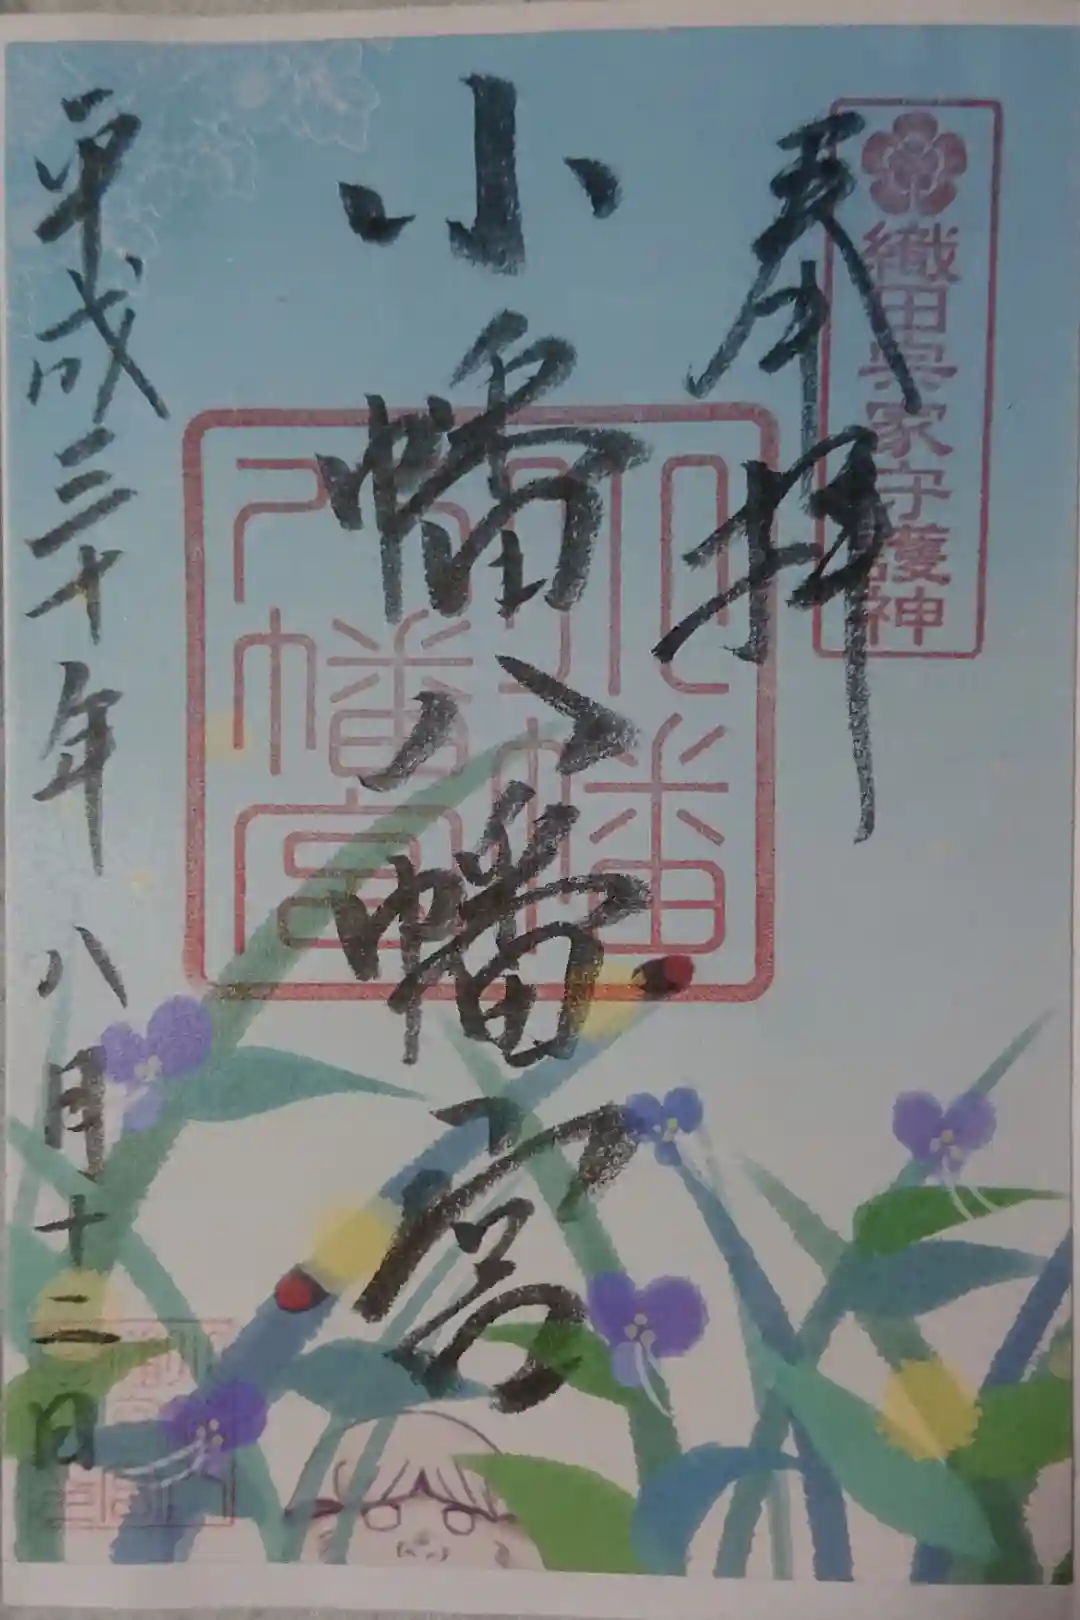 奉拝
織田宗家守護神
小幡八幡宮
小幡八幡宮
平成三十年八月十二日